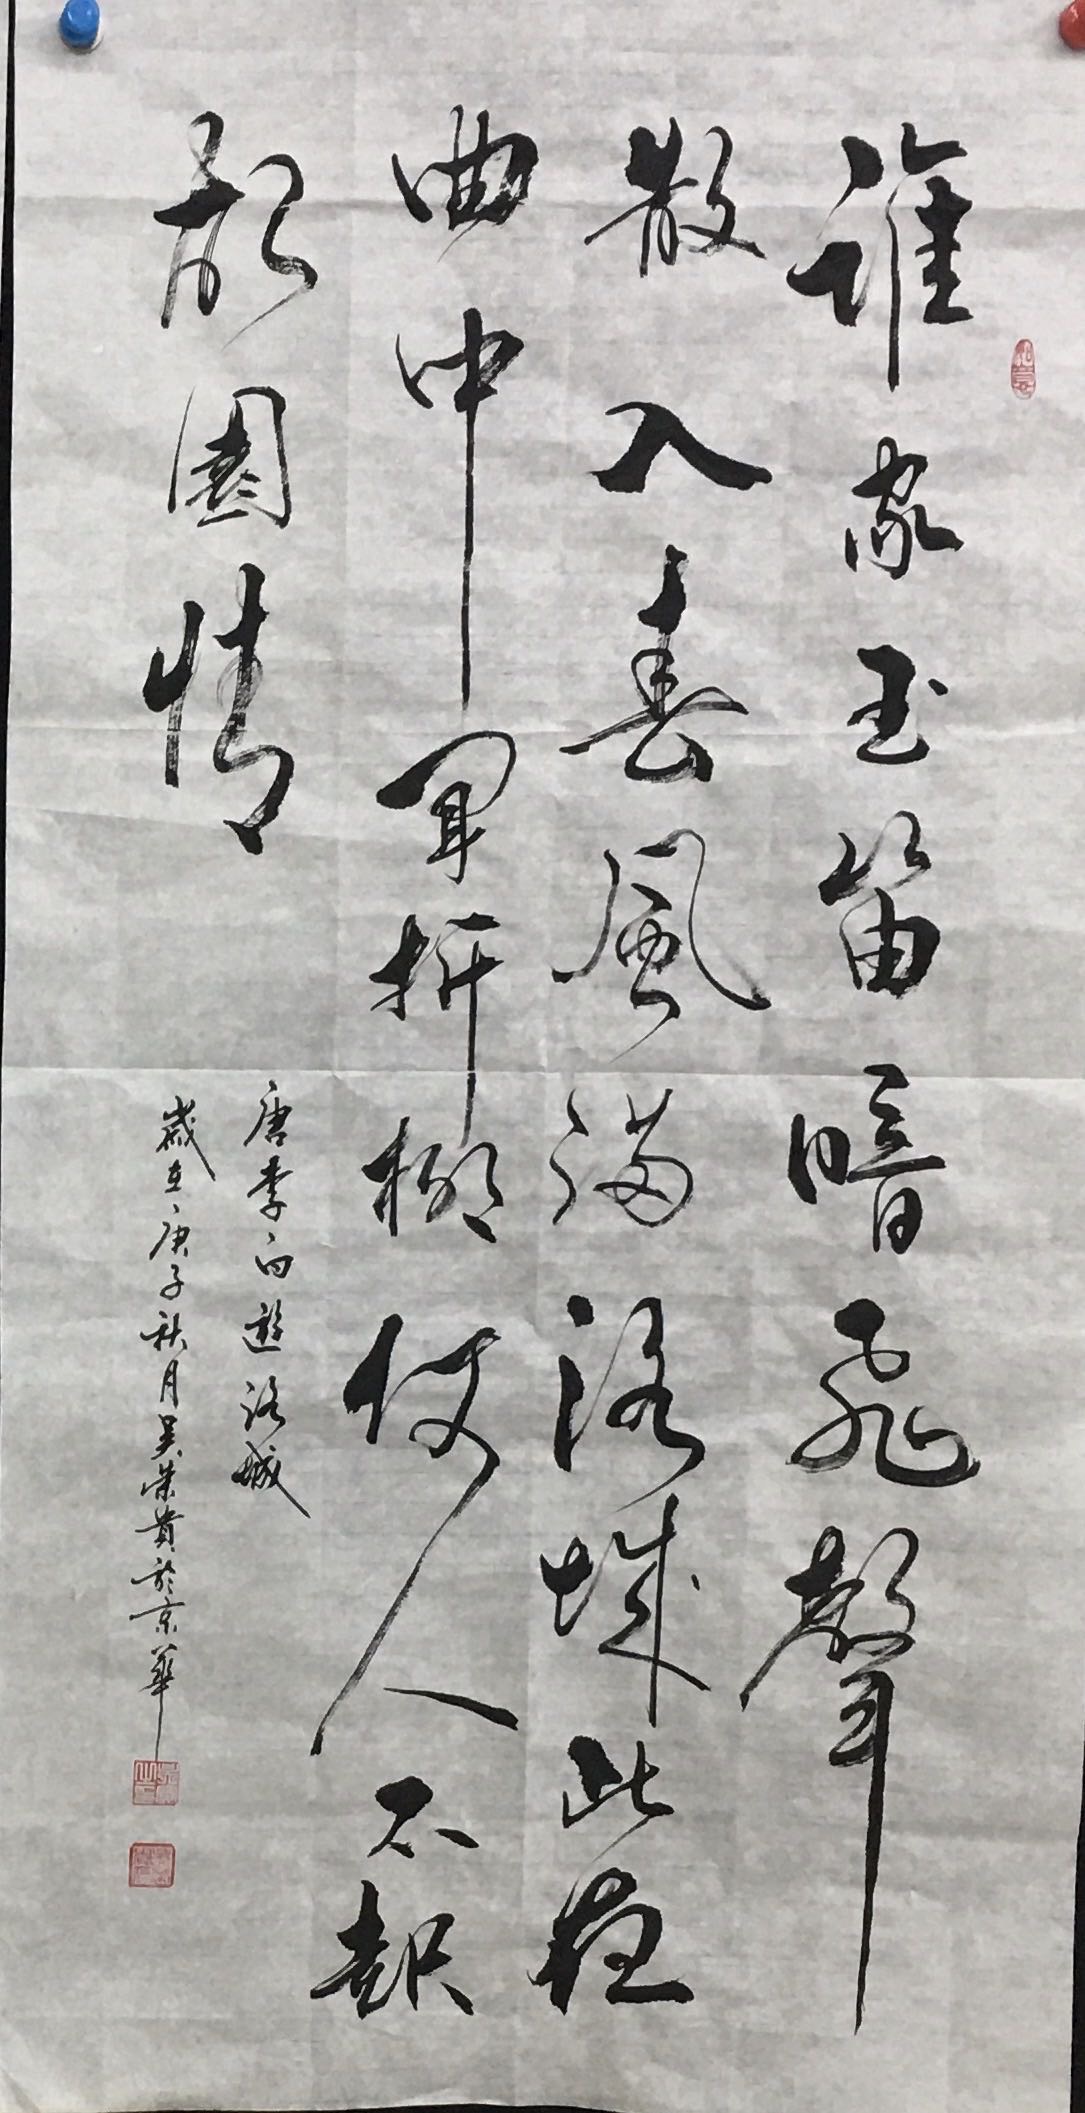 誰家玉笛暗飛聲
散入春風滿洛城此夜
曲中聞折柳使人不起
故園情
唐李白遊洛城
歲在庚子秋月吳榮貴於京華